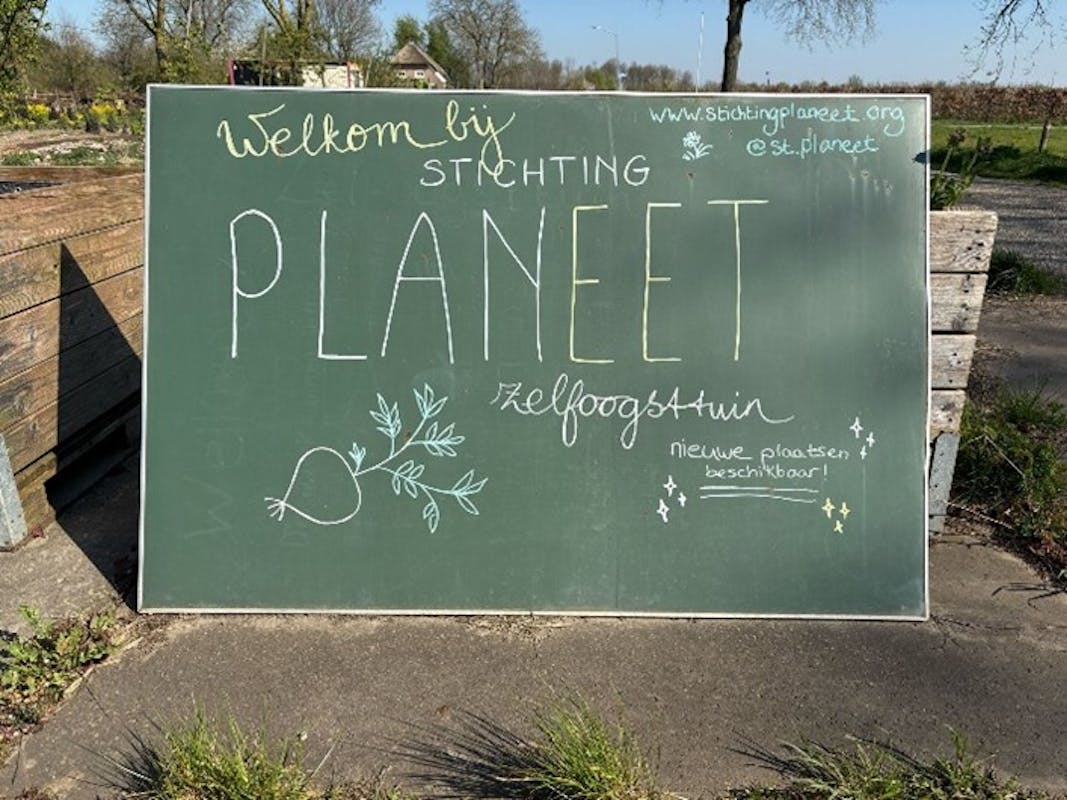 Welkom bij
www.stichtingplaneet.org
@st.planeet
STICHTING
PLANEET
zelfoogsttuin
nieuwe plaatsen
beschikbaar!